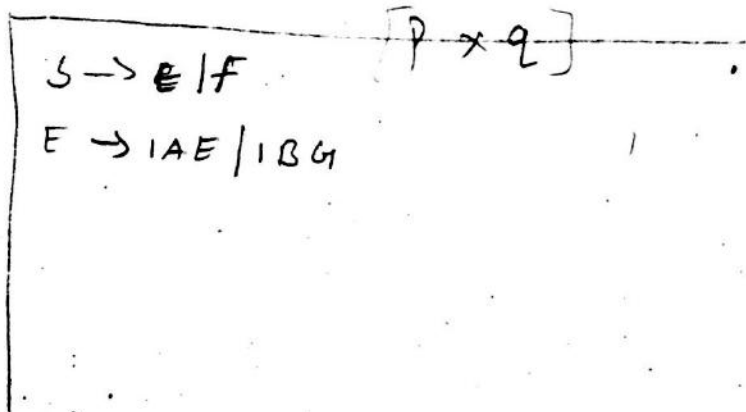 [P x q]
S -> E | F
E -> 1AE | 1BG